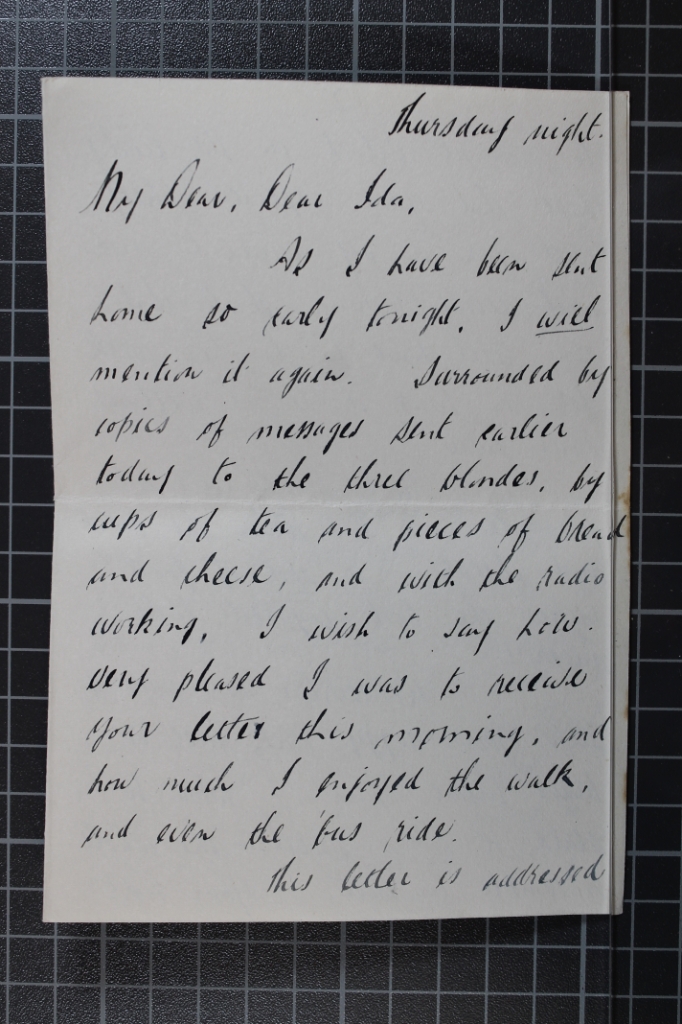 Thursday night.
My Dear, Dear Ida,
As I have been sent
home so early tonight, I will
mention it again. Surrounded by
copies of messages sent earlier
today to the three blondes, by
cups of tea and pieces of bread
and cheese, and with the radio
working, I wish to say how.
very pleased I was to receive
your letter this morning, and
how much I enjoyed the walk,
and even the 'bus ride.
This letter is addressed